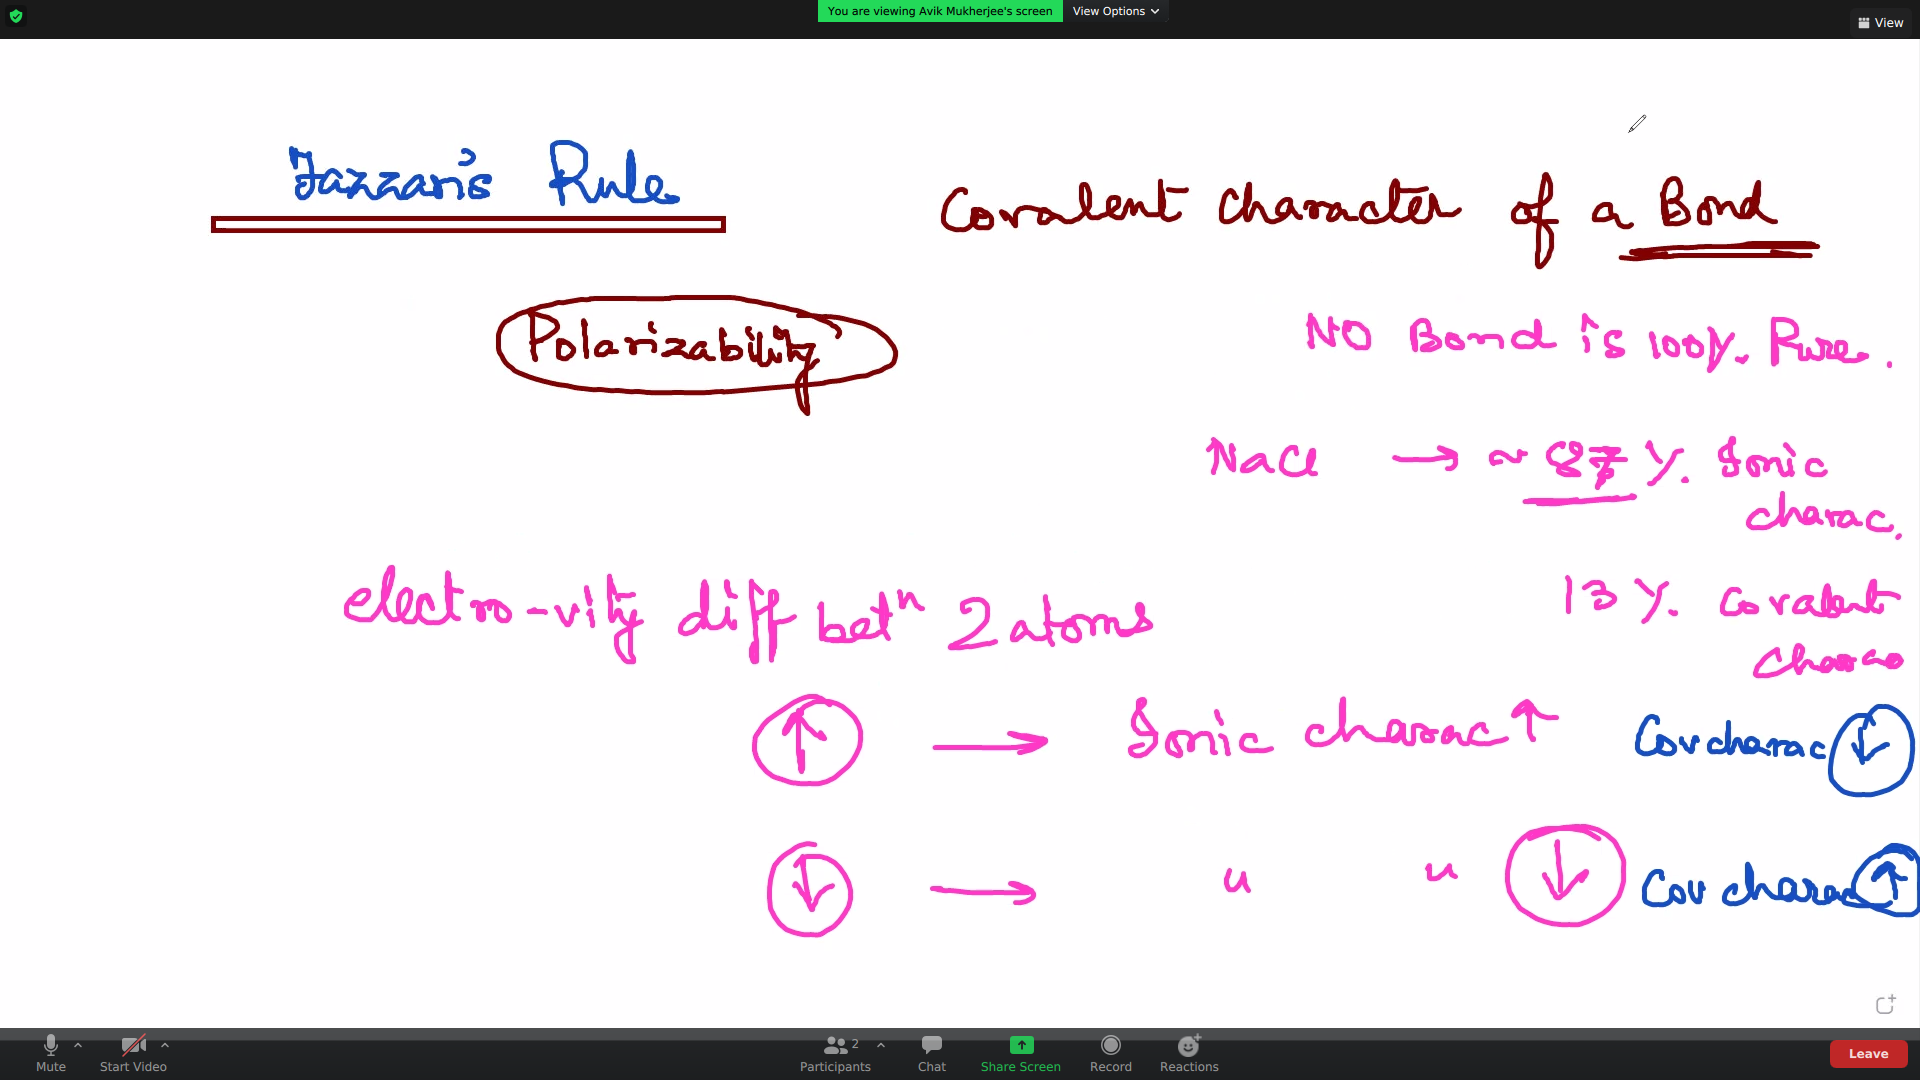 You are viewing Avik Mukherjee's screen View Options
View
Fazzan's Rule
Covalent character of a Bond
Polarizability
NO Bond is 100%. Pure.
NaCl → ~ 87 %. Ionic
charac.
electro-vity diff betⁿ 2 atoms
13 %. Covalent
charac
↑ → Ionic charac ↑ Cov charac ↓
↓ → u u ↓ Cov charac ↑
Mute Start Video Participants 2 Chat Share Screen Record Reactions Leave